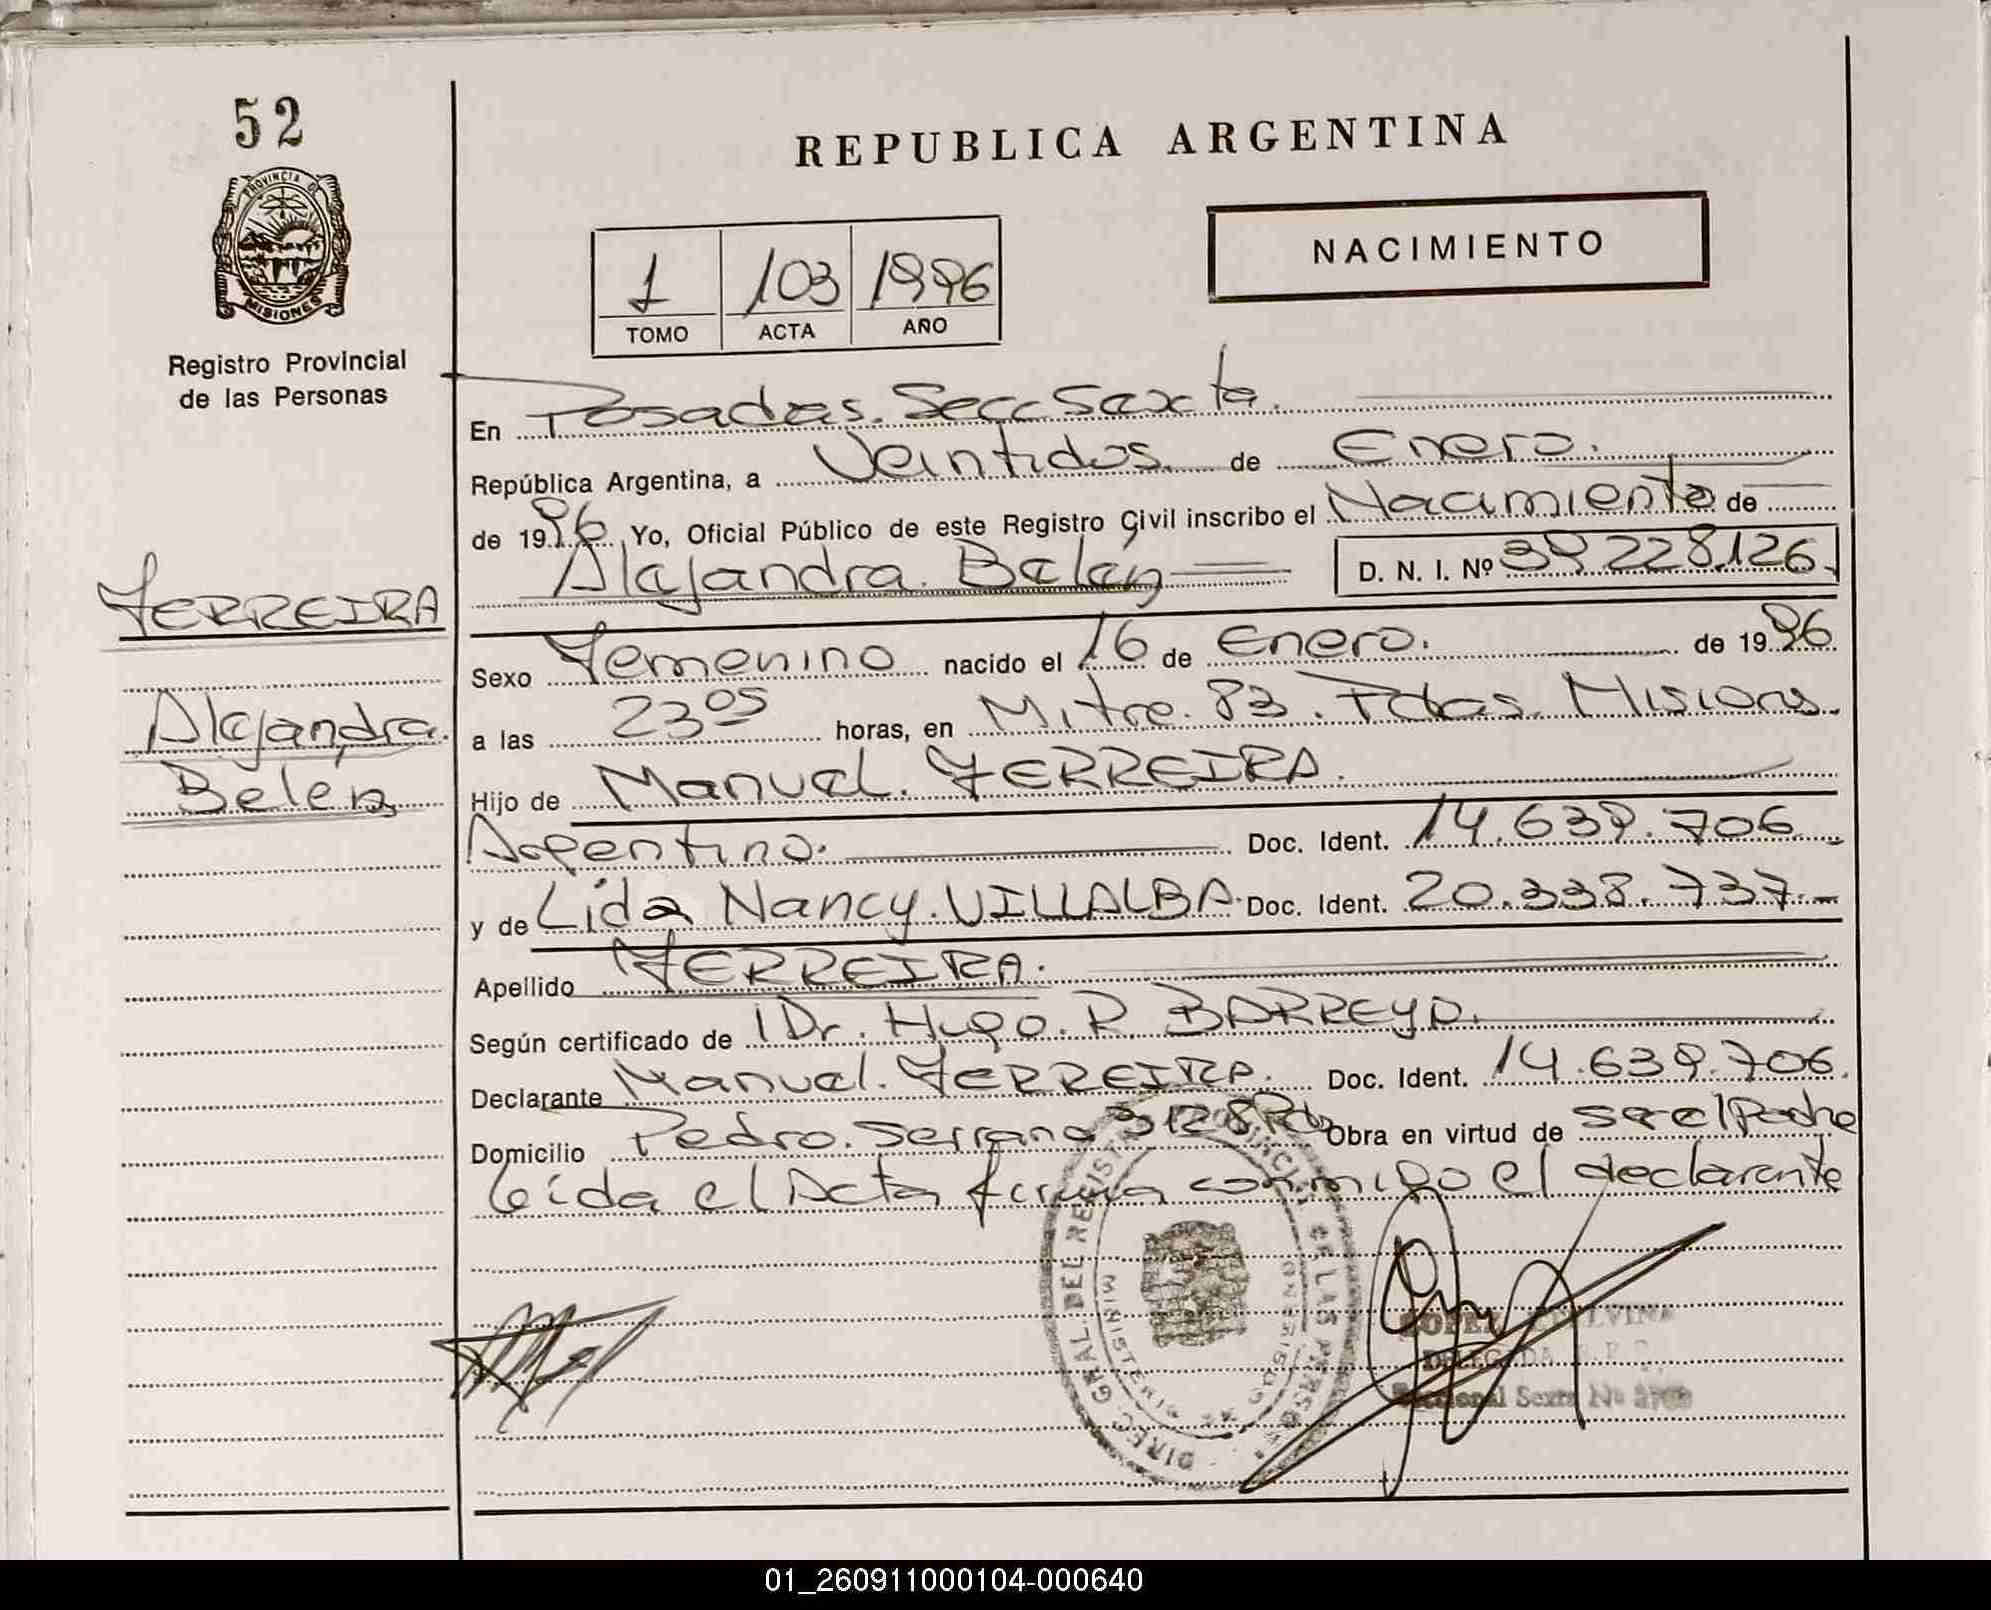 52
PROVINCIA DE
MISIONES
Registro Provincial
de las Personas
REPUBLICA ARGENTINA
NACIMIENTO
1 103 1996
TOMO ACTA AÑO
En Posadas. Secc Sexta.
República Argentina, a Veintidos de Enero.
de 1996 Yo, Oficial Público de este Registro Civil inscribo el Nacimiento de
Alejandra Belén D. N. I. Nº 39.228.126.
FERREIRA
Alejandra
Belén
Sexo Femenino nacido el 16 de Enero. de 1996
a las 23 05 horas, en Mitre. 83. Pdas. Misiones
Hijo de Manuel. FERREIRA.
Argentino. Doc. Ident. 14.639.706
y de Lida Nancy. VILLALBA. Doc. Ident. 20.338.737.-
Apellido FERREIRA.
Según certificado de Dr. Hugo. R. BARREYRO.
Declarante Manuel. FERREIRA. Doc. Ident. 14.639.706.
Domicilio Pedro. Serrano 3128 Obra en virtud de ser el Padre
leida el Acta firma conmigo el declarante
DIREC. GRAL. DEL REGIST PROVINCIAL DE LAS PERSONAS
MINISTERIO
LOPEZ ELVIRA
DELEGADA R.P.P.
Seccional Sexta Nº
01_260911000104-000640